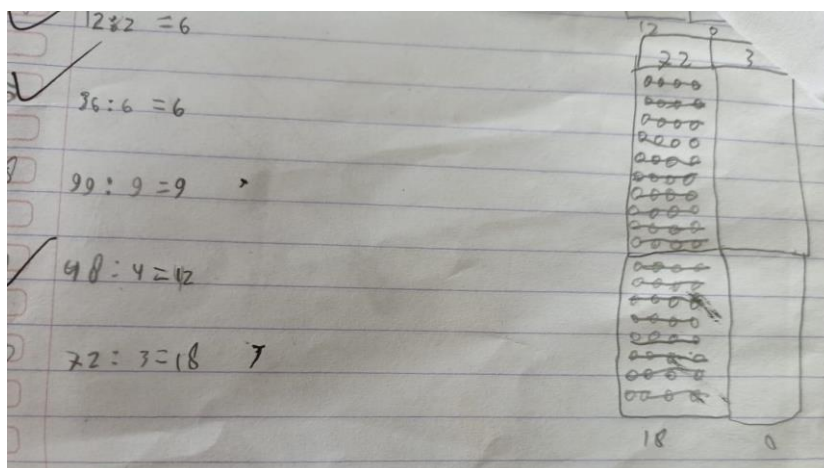 12:2 = 6
36:6 = 6
99: 9 = 9
48: 4 = 12
72: 3 = 18
12 0
72 3
18 0